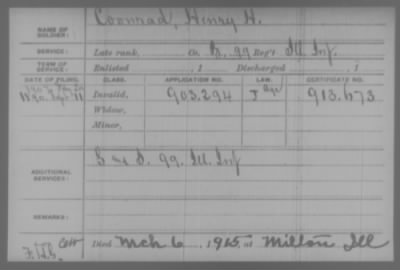 NAME OF SOLDIER: Coonrad, Henry H.
SERVICE: Late rank, Co. K, 99 Reg't Ill. Inf.
TERM OF SERVICE: Enlisted , 1 Discharged , 1
DATE OF FILING. CLASS. APPLICATION NO. LAW. CERTIFICATE NO.
1890 Sept 11 Invalid, 903.294 J 913.673
Widow,
Minor,
ADDITIONAL SERVICES: 99. Ill. Inf
REMARKS:
Died Mch 6, 1915, at Milton Ill